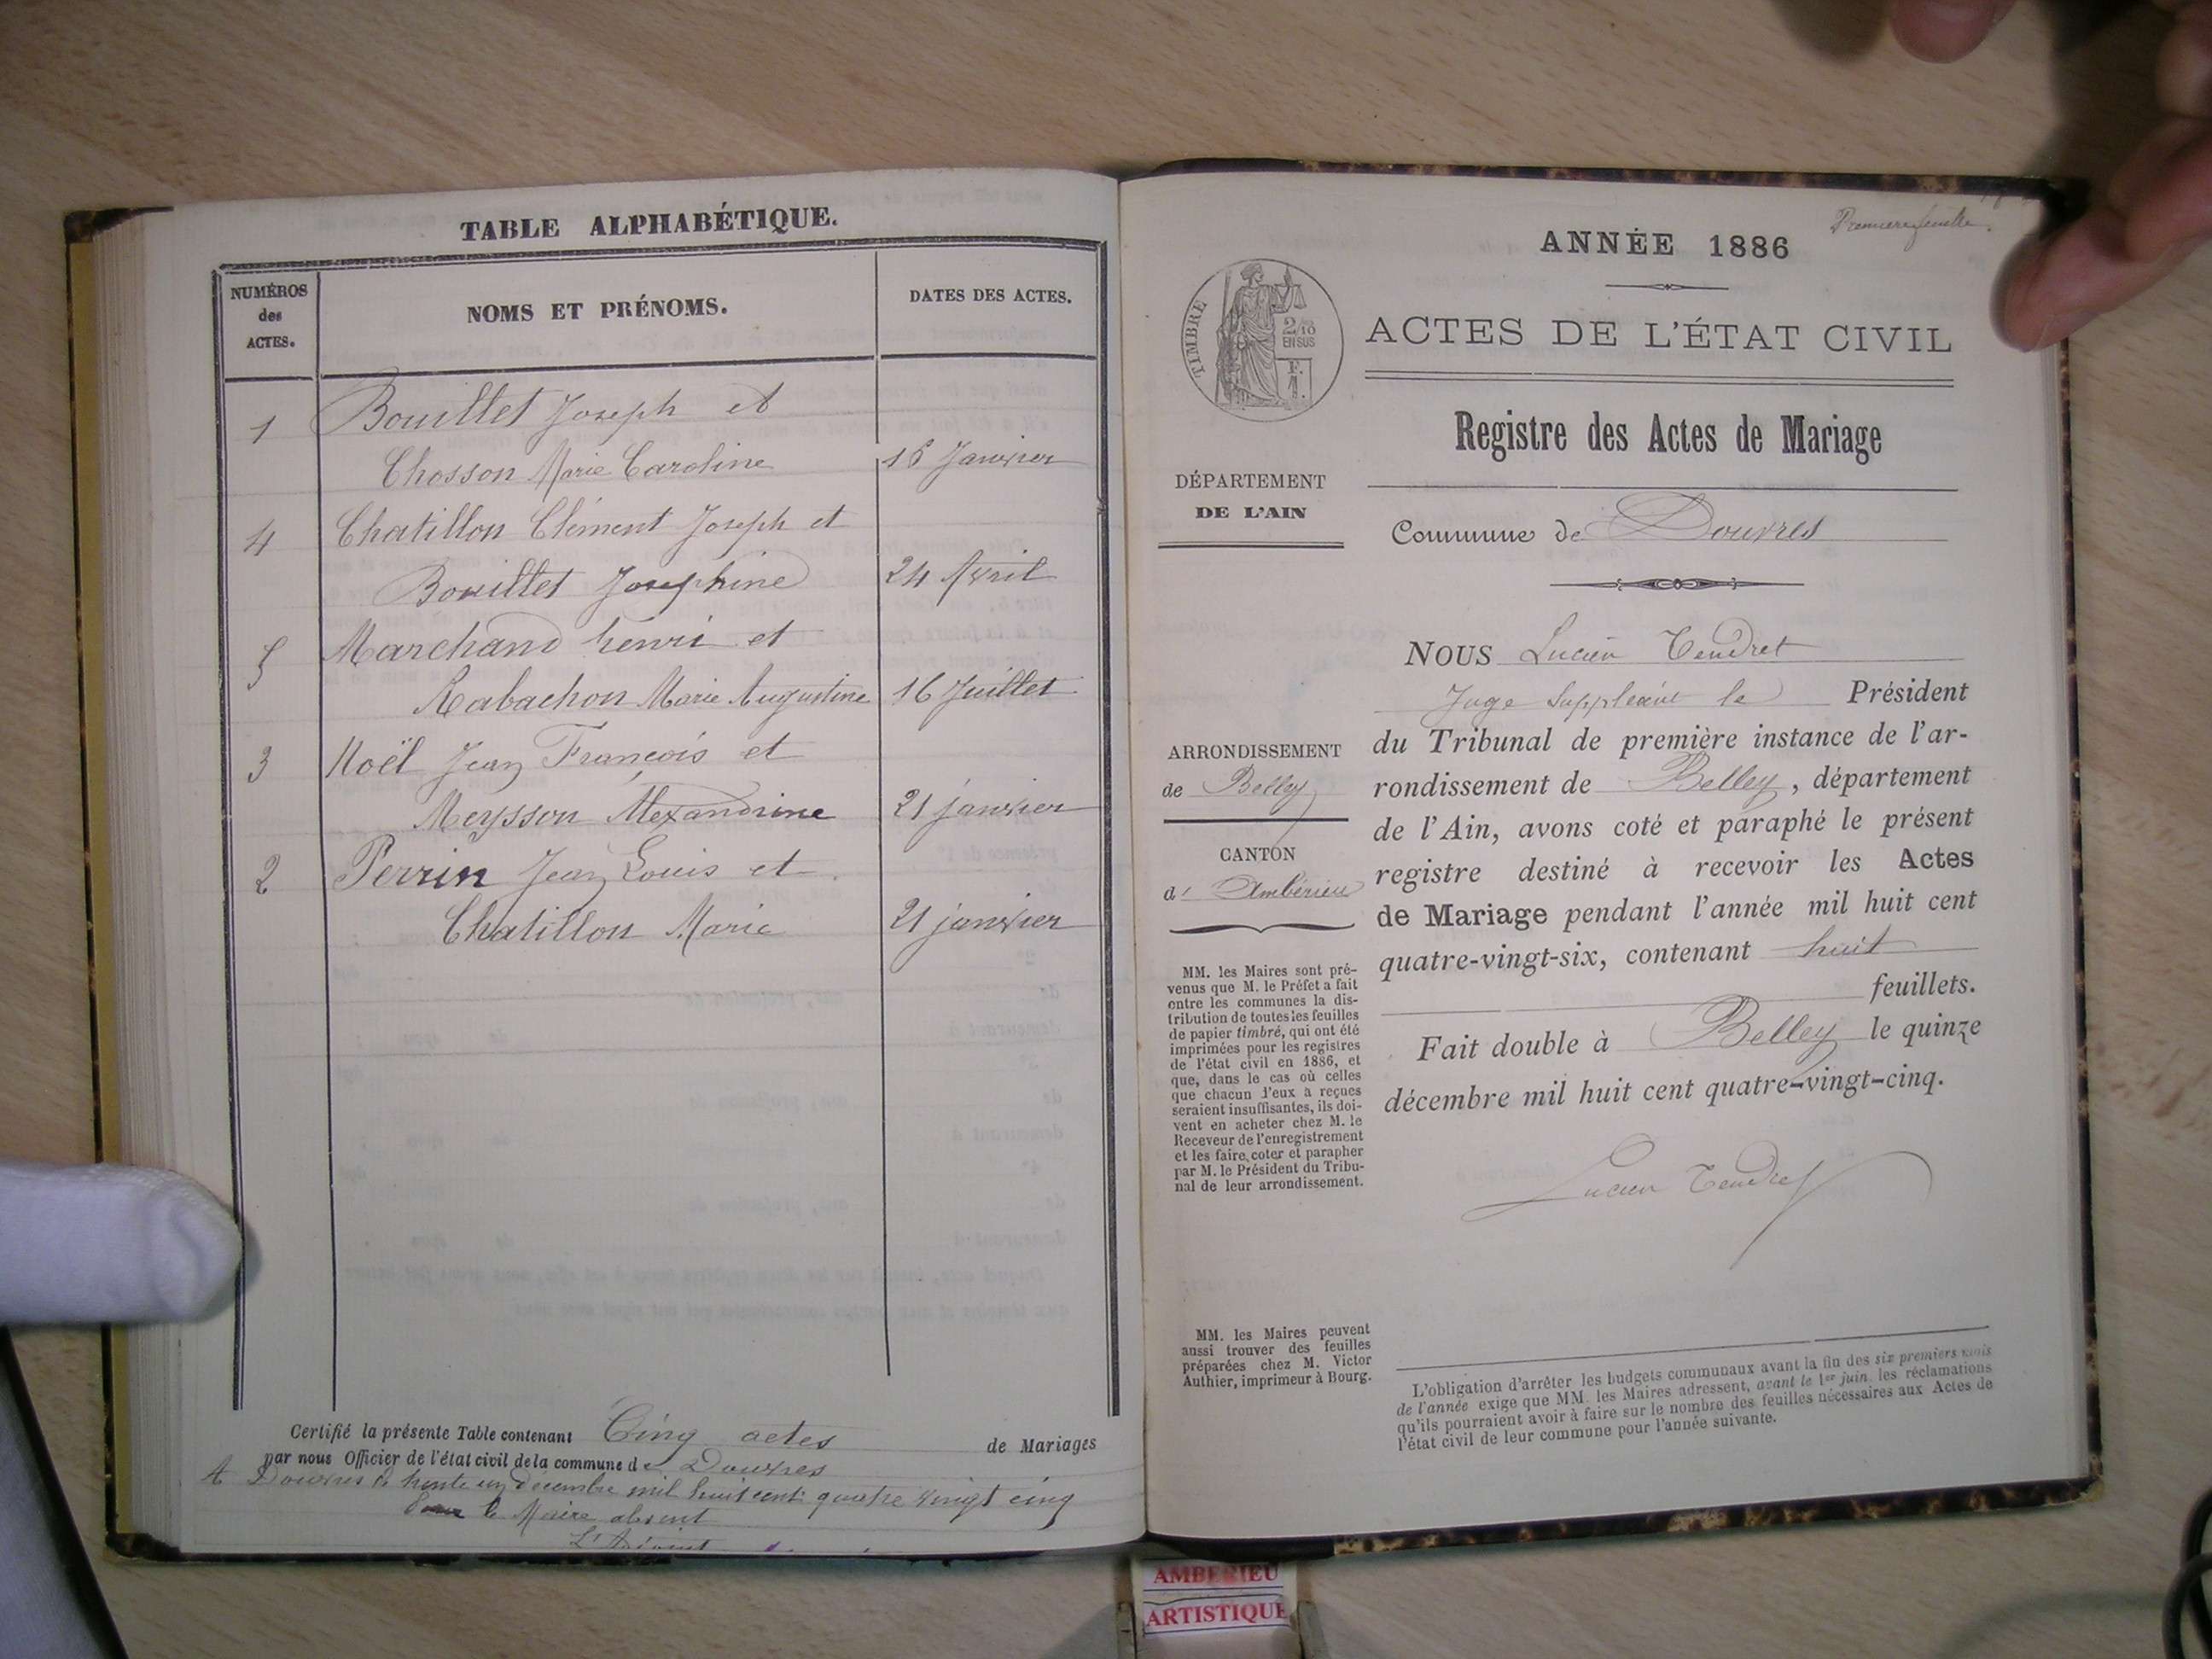 TABLE ALPHABÉTIQUE.
NUMÉROS
des
ACTES.
NOMS ET PRÉNOMS.
DATES DES ACTES.
1 Bouillet Joseph et
Chosson Marie Caroline 16 Janvier
4 Chatillon Clément Joseph et
Bouillet Josephine 24 Avril
5 Marchand henri et
Rabachon Marie Augustine 16 Juillet
3 Noël Jean François et
Meysson Alexandrine 21 janvier
2 Perrin Jean Louis et
Chatillon Marie 21 janvier
Certifié la présente Table contenant Cinq actes de Mariages
par nous Officier de l'état civil de la commune de Douvres
A Douvres le trente un décembre mil huit cent quatre vingt cinq
Pour le Maire absent
L'Adjoint
Première feuille.
ANNÉE 1886
TIMBRE
2/10
EN SUS
F.
1.
ACTES DE L'ÉTAT CIVIL
Registre des Actes de Mariage
DÉPARTEMENT
DE L'AIN
Commune de Douvres
NOUS Lucien Tendret
Juge Suppléant le Président
du Tribunal de première instance de l'ar-
rondissement de Belley, département
de l'Ain, avons coté et paraphé le présent
registre destiné à recevoir les Actes
de Mariage pendant l'année mil huit cent
quatre-vingt-six, contenant huit
feuillets.
Fait double à Belley le quinze
décembre mil huit cent quatre-vingt-cinq.
Lucien Tendret
ARRONDISSEMENT
de Belley
CANTON
d' Ambérieu
MM. les Maires sont pré-
venus que M. le Préfet a fait
entre les communes la dis-
tribution de toutes les feuilles
de papier timbré, qui ont été
imprimées pour les registres
de l'état civil en 1886, et
que, dans le cas où celles
que chacun d'eux a reçues
seraient insuffisantes, ils doi-
vent en acheter chez M. le
Receveur de l'enregistrement
et les faire coter et parapher
par M. le Président du Tribu-
nal de leur arrondissement.
MM. les Maires peuvent
aussi trouver des feuilles
préparées chez M. Victor
Authier, imprimeur à Bourg.
L'obligation d'arrêter les budgets communaux avant la fin des six premiers mois
de l'année exige que MM. les Maires adressent, avant le 1er juin. les réclamations
qu'ils pourraient avoir à faire sur le nombre des feuilles nécessaires aux Actes de
l'état civil de leur commune pour l'année suivante.
AMBERIEU
ARTISTIQUE